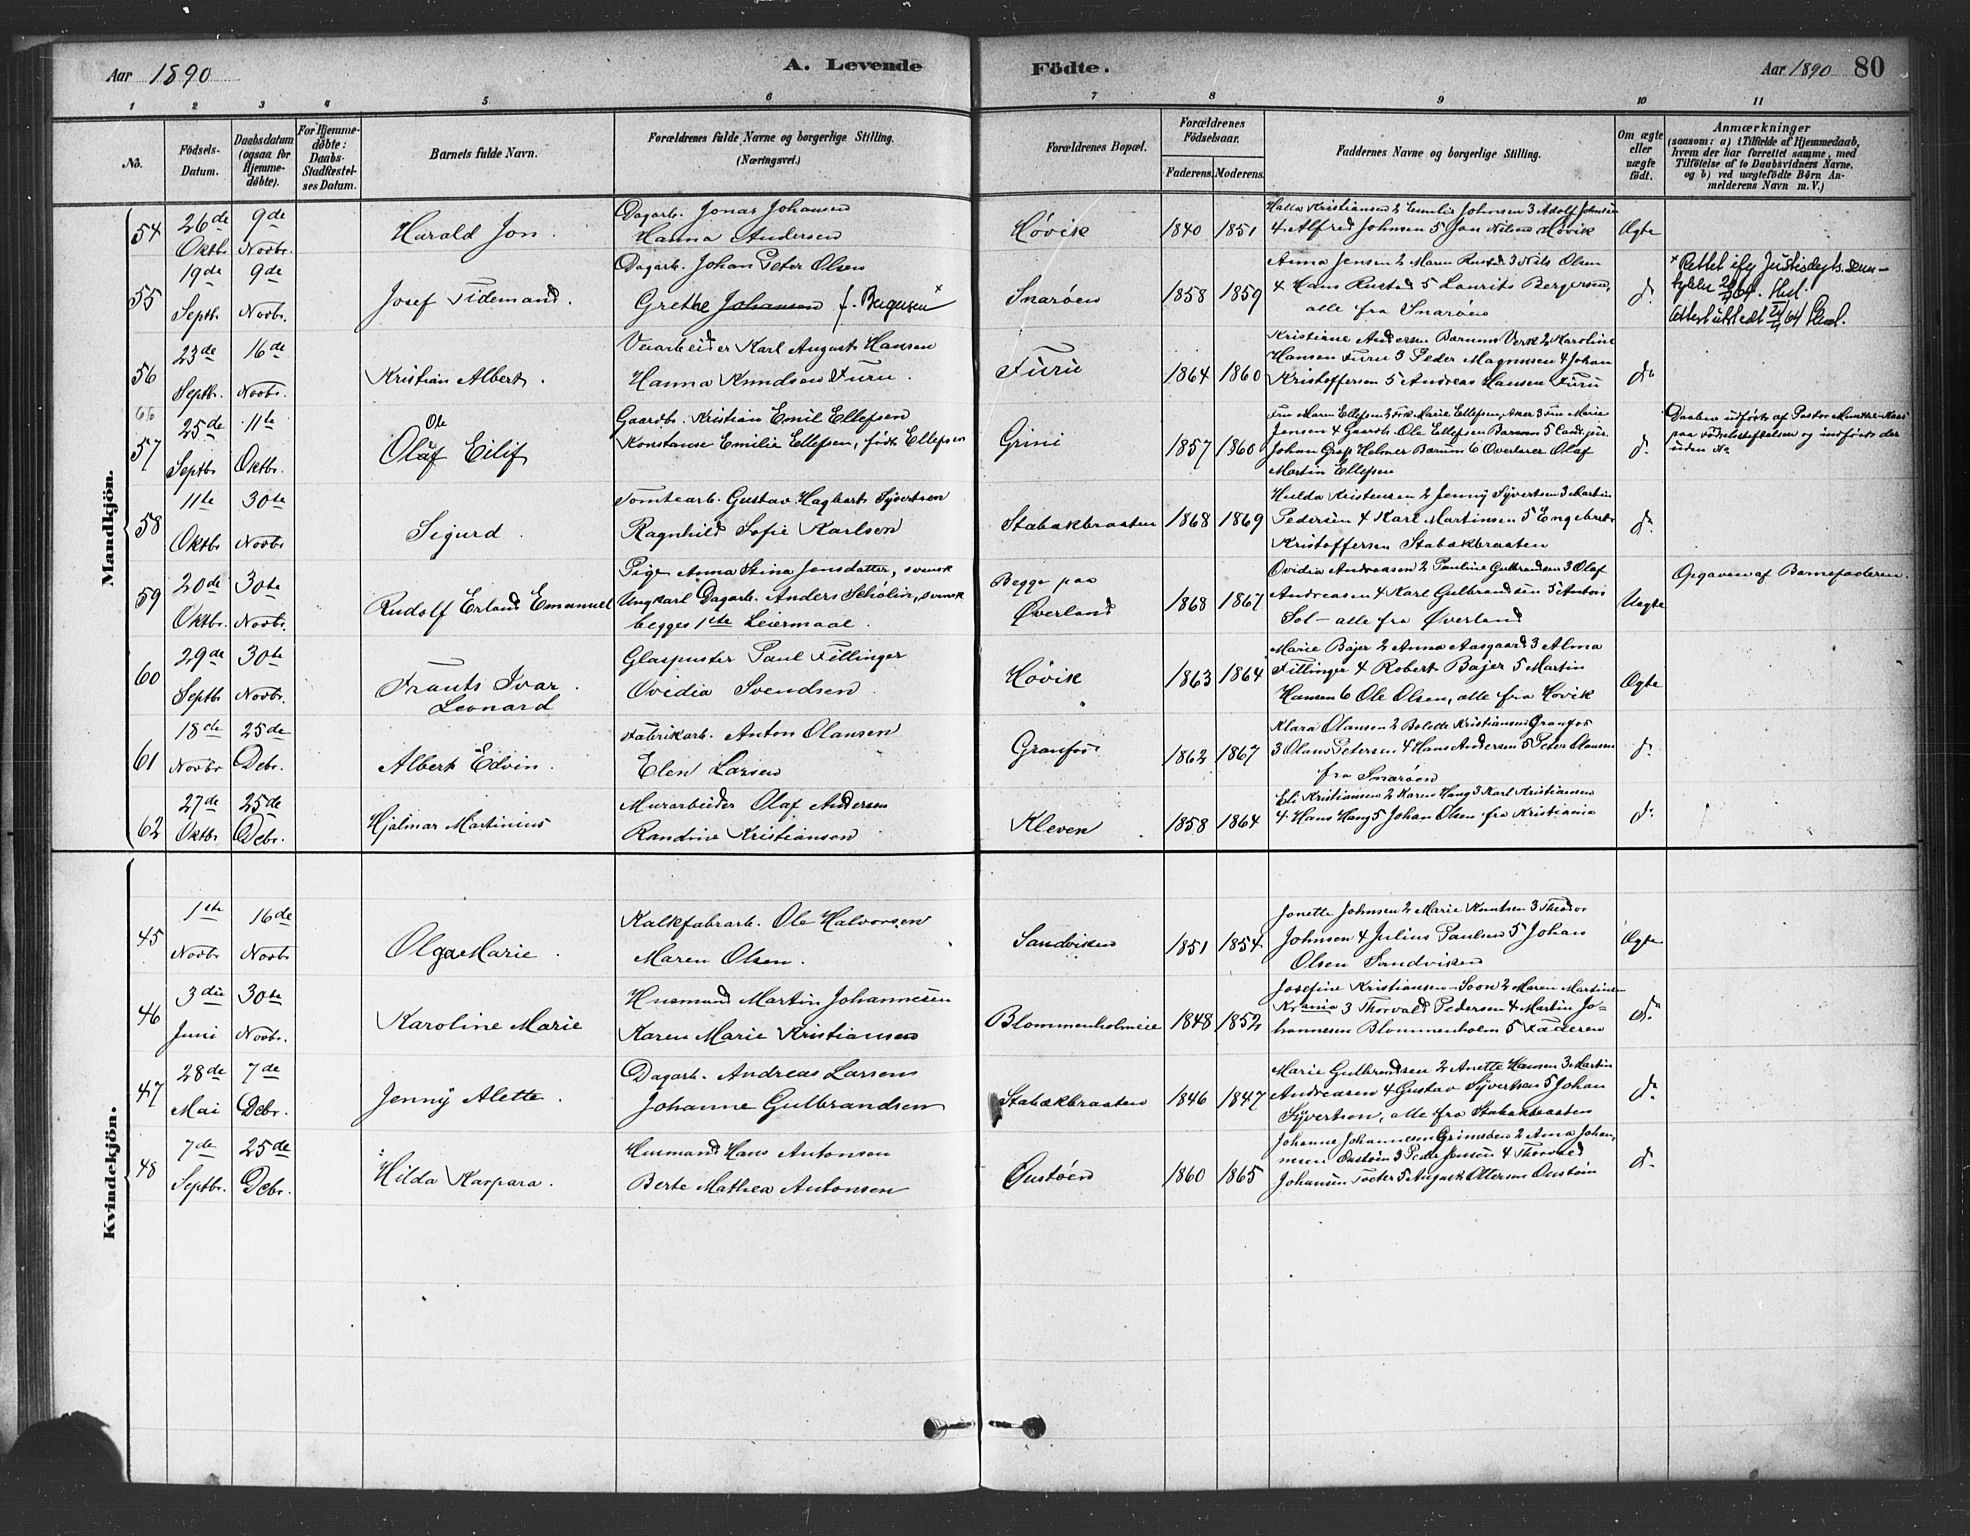 Aar 1890 A. Levende Fødte. Aar 1890 80
1 2 3 4 5 6 7 8 9 10 11
No.
Fødsels-Datum.
Daabsdatum (ogsaa for Hjemme-døbte).
For Hjemme-døbte: Daabs-Stadfæstelses Datum.
Barnets fulde Navn.
Forældrenes fulde Navne og borgerlige Stilling. (Næringsvei.)
Forældrenes Bopæl.
Forældrenes Fødselsaar.
Faderens. Moderens.
Faddernes Navne og borgerlige Stilling.
Om ægte eller uægte født.
Anmærkninger
(saasom: a) i Tilfælde af Hjemmedaab, hvem der har forrettet samme, med Tilføielse af to Daabsvidners Navne, og b) ved uægtefødte Børn Anmelderens Navn m. V.)
Mandkjön.
54 26de Oktbr. 9de Novbr.
Harald Jon.
Dagarb. Jonas Johansen
Hanna Andersen
Høvik 1840 1851
Kristiansen 2 Emilie Johnsen 3 Adolf Johnsen
4 Alfred Johnsen 5 Jon Nilsen Høvik
Ægte
55 19de Septbr. 9de Novbr.
Josef Tidemand.
Dagarb. Johan Peter Olsen
Grethe Johansen f. Bergersen x
Snarøen 1858 1859
Anna Jensen 2 Maren Rustad 3 Nils Olsen
4 Hans Rustad 5 Laurits Bergersen,
alle fra Snarøen
do
x Rettet ifg Justisdepts. sam-
tykke
Attest utstedt
56 23de Septbr. 16de Novbr.
Kristian Albert.
Veiarbeider Karl August Hansen
Hanna Knudsen Furu.
Furu 1864 1860
Kristiane Andersen Bærums Verk 2 Karoline
Hansen Furu 3 Peder Magnusen 4 Johan
Kristoffersen 5 Andreas Hansen Furu
do
66
57 25de Septbr. 11te Oktbr.
Ole
Olaf Eilif
Gaardb. Kristian Emil Ellefsen
Konstanse Emilie Ellefsen, født Ellefsen
Grini 1857 1860
Fru Maren Ellefsen 2 Frk. Marie Ellefsen, Aker 3 Fru Marie
Jensen 4 Gaardb. Ole Ellefsen Bærum 5 Cand. jur.
Johan Grøss Helmer Bærum 6 Overlærer Olaf
Martin Ellefsen
do
Daaben udført af Pastor Munthe-Kaas
paa Fødselsstiftelsen og indført der
uden No
58 11te Oktbr. 30te Novbr.
Sigurd.
Tomtearb. Gustav Hagbart Syvertsen
Ragnhild Sofie Karlsen
Stabækbraaten 1868 1869
Hulda Kristensen 2 Jenny Syvertsen 3 Martin
Pedersen 4 Karl Martinsen 5 Engebret
Kristoffersen Stabækbraaten
do
59 20de Oktbr. 30te Novbr.
Rudolf Erland Emanuel
Pige Anna Stina Jonsdatter, svensk
Ungkarl Dagarb. Anders Scholin, svensk
begges 1ste Leiermaal.
Begge paa
Øverland 1868 1867
Ovidia Andreasen 2 Pauline Gulbrandsen 3 Olaf
Andreasen 4 Karl Gulbrandsen 5 Anton
Sol – alle fra Øverland
Uægte
Opgaven af Barnefaderen.
60 29de Septbr. 30te Novbr.
Frants Ivar.
Leonard
Glaspuster Paul Fillinger
Ovidia Svendsen.
Høvik 1863 1864
Marie Bajer 2 Anna Aasgaard 3 Alma
Fillinger 4 Robert Bajer 5 Martin
Hansen 6 Ole Olsen, alle fra Høvik
Ægte
61 18de Novbr 25de Debr.
Albert Edvin.
Fabrikarb. Anton Olausen
Elen Larsen
Granfos 1862 1867
Klara Olausen 2 Bolette Kristiansen Granfos
3 Olaus Petersen 4 Hans Andersen 5 Peter Olausen
fra Snarøen
do
62 27de Oktbr 25de Debr.
Hjalmar Martinius
Murarbeider Olaf Andersen
Randine Kristiansen
Kleven 1858 1864
Eli Kristiansen 2 Karen Haug 3 Karl Kristiansen
4 Hans Haug 5 Johan Olsen fra Kristiania
do
Kvindekjön.
45 1ste Novbr 16de Novbr
Olga Marie.
Kalkfabrarb. Ole Halvorsen
Maren Olsen.
Sandviken 1851 1854
Jonette Johnsen 2 Marie Knutsen 3 Theodor
Johnsen 4 Julius Paulsen 5 Johan
Olsen Sandviken
Ægte
46 3die Juni 30te Novbr.
Karoline Marie
Husmand Martin Johannesen
Karen Marie Kristiansen
Blommenholmeie 1848 1852
Josefine Kristiansen – Soon 2 Maren Martinsen
Krania 3 Thorvald Pedersen 4 Martin Jo-
hannesen Blommenholm 5 Faderen
do
47 28de Mai 7de Debr.
Jenny Alette.
Dagarb. Andreas Larsen
Johanne Gulbrandsen
Stabækbraaten 1846 1847
Marie Gulbrandsen 2 Anette Hansen 3 Martin
Andreasen 4 Gustav Syvertsen 5 Johan
Syvertsen, alle fra Stabækbraaten
do
48 7de Septbr. 25de Debr.
Hilda Kaspara.
Husmand Hans Antonsen
Berte Mathea Antonsen
Oustøen 1860 1865
Johanne Johannesen Grimsøen 2 Anna Johan-
nesen Oustøen 3 Peder Jensen 4 Thorvald
Johansen 5 August Ottersen Oustøen
do